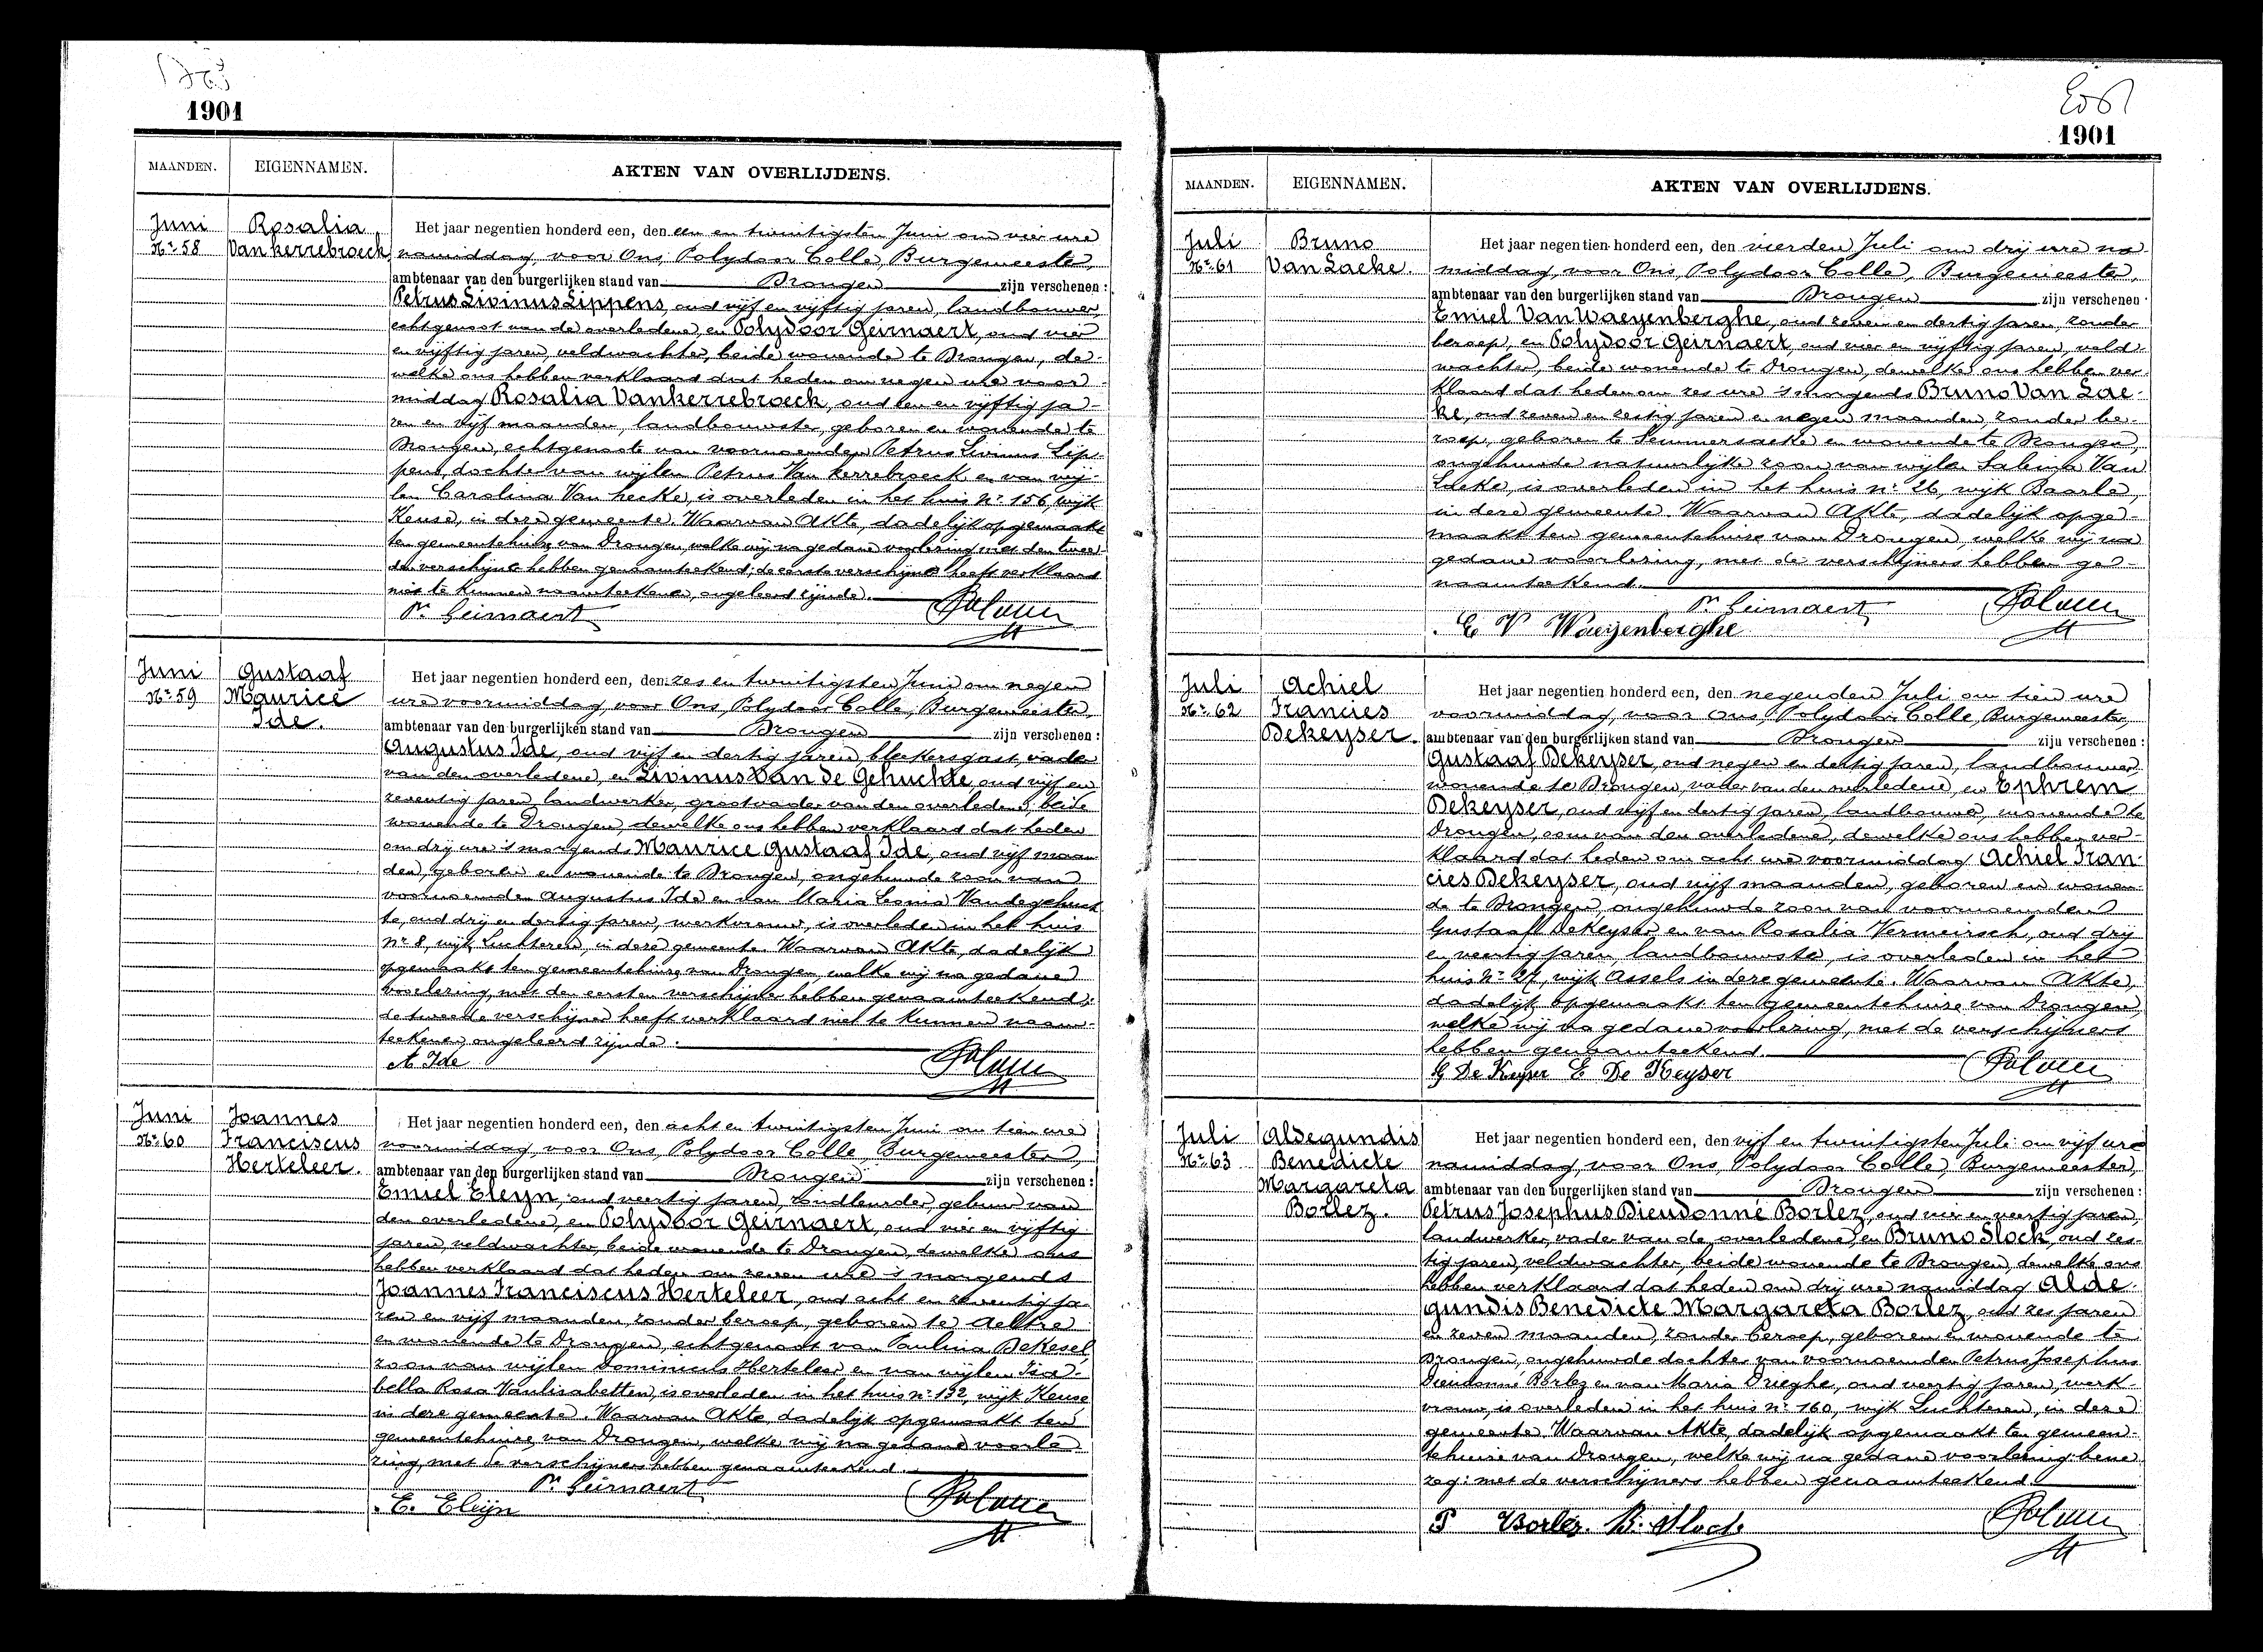 1901
MAANDEN. EIGENNAMEN. AKTEN VAN OVERLIJDENS.
Juni Nr 58
Rosalia Vankerrebroeck
Het jaar negentien honderd een, den een en twintigsten Juni om vier ure
namiddag, voor Ons, Polydoor Colle, Burgemeester,
ambtenaar van den burgerlijken stand van Drongen zijn verschenen:
Petrus Livinus Lippens, oud vijf en vijftig jaren, landbouwer,
echtgenoot van de overledene, en Polydoor Geirnaert, oud vier
en vijftig jaren, veldwachter, beide wonende te Drongen, de-
welke ons hebben verklaard dat heden om negen ure voor-
middag Rosalia Vankerrebroeck, oud een en vijftig ja-
ren en vijf maanden, landbouwster, geboren en wonende te
Drongen, echtgenoote van voornoemden Petrus Livinus Lip-
pens, dochter van wijlen Petrus Van kerrebroeck en van wij-
len Carolina Van hecke, is overleden in het huis Nr 156, wijk
Keuse, in deze gemeente. Waarvan Akte, dadelijk opgemaakt
ten gemeentehuize van Drongen, welke wij na gedane voorlezing met den twee-
den verschijner hebben genaamteekend; de eerste verschijner heeft verklaard
niet te kunnen naamteekenen, ongeleerd zijnde.
Pr Geirnaert PColle
Juni Nr 59
Gustaaf Maurice Ide.
Het jaar negentien honderd een, den zes en twintigsten Juni om negen
ure voormiddag, voor Ons, Polydoor Colle, Burgemeester,
ambtenaar van den burgerlijken stand van Drongen zijn verschenen:
Augustus Ide, oud vijf en dertig jaren, bleekersgast, vader
van den overledene, en Livinus Van de Gehuchte, oud vijf en
zeventig jaren, landwerker, grootvader van den overledene, beide
wonende te Drongen, dewelke ons hebben verklaard dat heden
om drij ure 's morgends Maurice Gustaaf Ide, oud vijf maan-
den, geboren en wonende te Drongen, ongehuwde zoon van
voornoemden Augustus Ide en van Maria Leonia Vandegehuch-
te, oud drij en dertig jaren, werkvrouw, is overleden in het huis
Nr 8, wijk Luchteren, in deze gemeente. Waarvan Akte, dadelijk
opgemaakt ten gemeentehuize van Drongen, welke wij na gedane
voorlezing, met den eersten verschijner hebben genaamteekend;
de tweede verschijner heeft verklaard niet te kunnen naam-
teekenen, ongeleerd zijnde.
A Ide PColle
Juni Nr 60
Joannes Franciscus Herteleer.
Het jaar negentien honderd een, den acht en twintigsten Juni om tien ure
voormiddag, voor Ons, Polydoor Colle, Burgemeester,
ambtenaar van den burgerlijken stand van Drongen zijn verschenen:
Emiel Eleyn, oud veertig jaren, gebuur van
den overledene, en Polydoor Geirnaert, oud vier en vijftig
jaren, veldwachter, beide wonende te Drongen, dewelke ons
hebben verklaard dat heden om zeven ure 's morgends
Joannes Franciscus Herteleer, oud acht en zeventig ja-
ren en vijf maanden, zonder beroep, geboren te Aeltre
en wonende te Drongen, echtgenoot van Paulina DeKesel,
zoon van wijlen Dominicus Herteleer en van wijlen Isa-
bella Rosa Vanlisabetten, is overleden in het huis nr 132, wijk Keuse
in deze gemeente. Waarvan Akte, dadelijk opgemaakt ten
gemeentehuize van Drongen, welke wij na gedane voorle-
zing, met de verschijners hebben genaamteekend.
Pr Geirnaert
E. Eleijn PColle
1901
MAANDEN. EIGENNAMEN. AKTEN VAN OVERLIJDENS.
Juli Nr 61
Bruno Van Laeke.
Het jaar negentien honderd een, den vierden Juli om drij ure na-
middag, voor Ons, Polydoor Colle, Burgemeester,
ambtenaar van den burgerlijken stand van Drongen zijn verschenen
Emiel Van Waeyenberghe, oud zeven en dertig jaren, zonder
beroep, en Polydoor Geirnaert, oud vier en vijftig jaren, veld-
wachter, beide wonende te Drongen, dewelke ons hebben ver-
klaard dat heden om zes ure 's morgends Bruno Van Lae-
ke, oud zeven en zestig jaren en negen maanden, zonder be-
roep, geboren te Semmersaeke en wonende te Drongen,
ongehuwde natuurlijke zoon van wijlen Sabina Van
Laeke, is overleden in het huis nr 26, wijk Baarle,
in deze gemeente. Waarvan Akte, dadelijk opge-
maakt ten gemeentehuize van Drongen, welke wij na
gedane voorlezing, met de verschijners hebben ge-
naamteekend.
Pr Geirnaert PColle
E V Waeyenberghe
Juli Nr 62
Achiel Francies Dekeyser.
Het jaar negentien honderd een, den negenden Juli om tien ure
voormiddag, voor Ons, Polydoor Colle, Burgemeester,
ambtenaar van den burgerlijken stand van Drongen zijn verschenen:
Gustaaf Dekeyser, oud negen en dertig jaren, landbouwer,
wonende te Drongen, vader van den overledene, en Ephrem
Dekeyser, oud vijf en dertig jaren, landbouwer, wonende te
Drongen, oom van den overledene, dewelke ons hebben ver-
klaard dat heden om acht ure voormiddag Achiel Fran-
cies Dekeyser, oud vijf maanden, geboren en wonen-
de te Drongen, ongehuwde zoon van voornoemden
Gustaaf DeKeyser en van Rosalia Vermeirsch, oud drij
en veertig jaren, landbouwster, is overleden in het
huis Nr 27, wijk Assels in deze gemeente. Waarvan Akte,
dadelijk opgemaakt ten gemeentehuize van Drongen,
welke wij na gedane voorlezing, met de verschijners
hebben genaamteekend.
G De Keyser E De Keyser PColle
Juli Nr 63
Aldegundis Benedicte Margareta Borlez.
Het jaar negentien honderd een, den vijf en twintigsten Juli om vijf ure
namiddag, voor Ons, Polydoor Colle, Burgemeester,
ambtenaar van den burgerlijken stand van Drongen zijn verschenen:
Petrus Josephus Dieudonné Borlez, oud vier en veertig jaren,
landwerker, vader van de overledene, en Bruno Slock, oud zes-
tig jaren, veldwachter, beide wonende te Drongen, dewelke ons
hebben verklaard dat heden om drij ure namiddag Alde-
gundis Benedicte Margareta Borlez, oud zes jaren
en zeven maanden, zonder beroep, geboren en wonende te
Drongen, ongehuwde dochter van voornoemden Petrus Josephus
Dieudonné Borlez en van Maria Drieghe, oud veertig jaren, werk-
vrouw, is overleden in het huis nr 160, wijk Luchteren, in deze
gemeente. Waarvan Akte, dadelijk opgemaakt ten gemeen-
tehuize van Drongen, welke wij na gedane voorlezing, bene-
zeg: met de verschijners hebben genaamteekend.
P Borlez. B. Slock. PColle